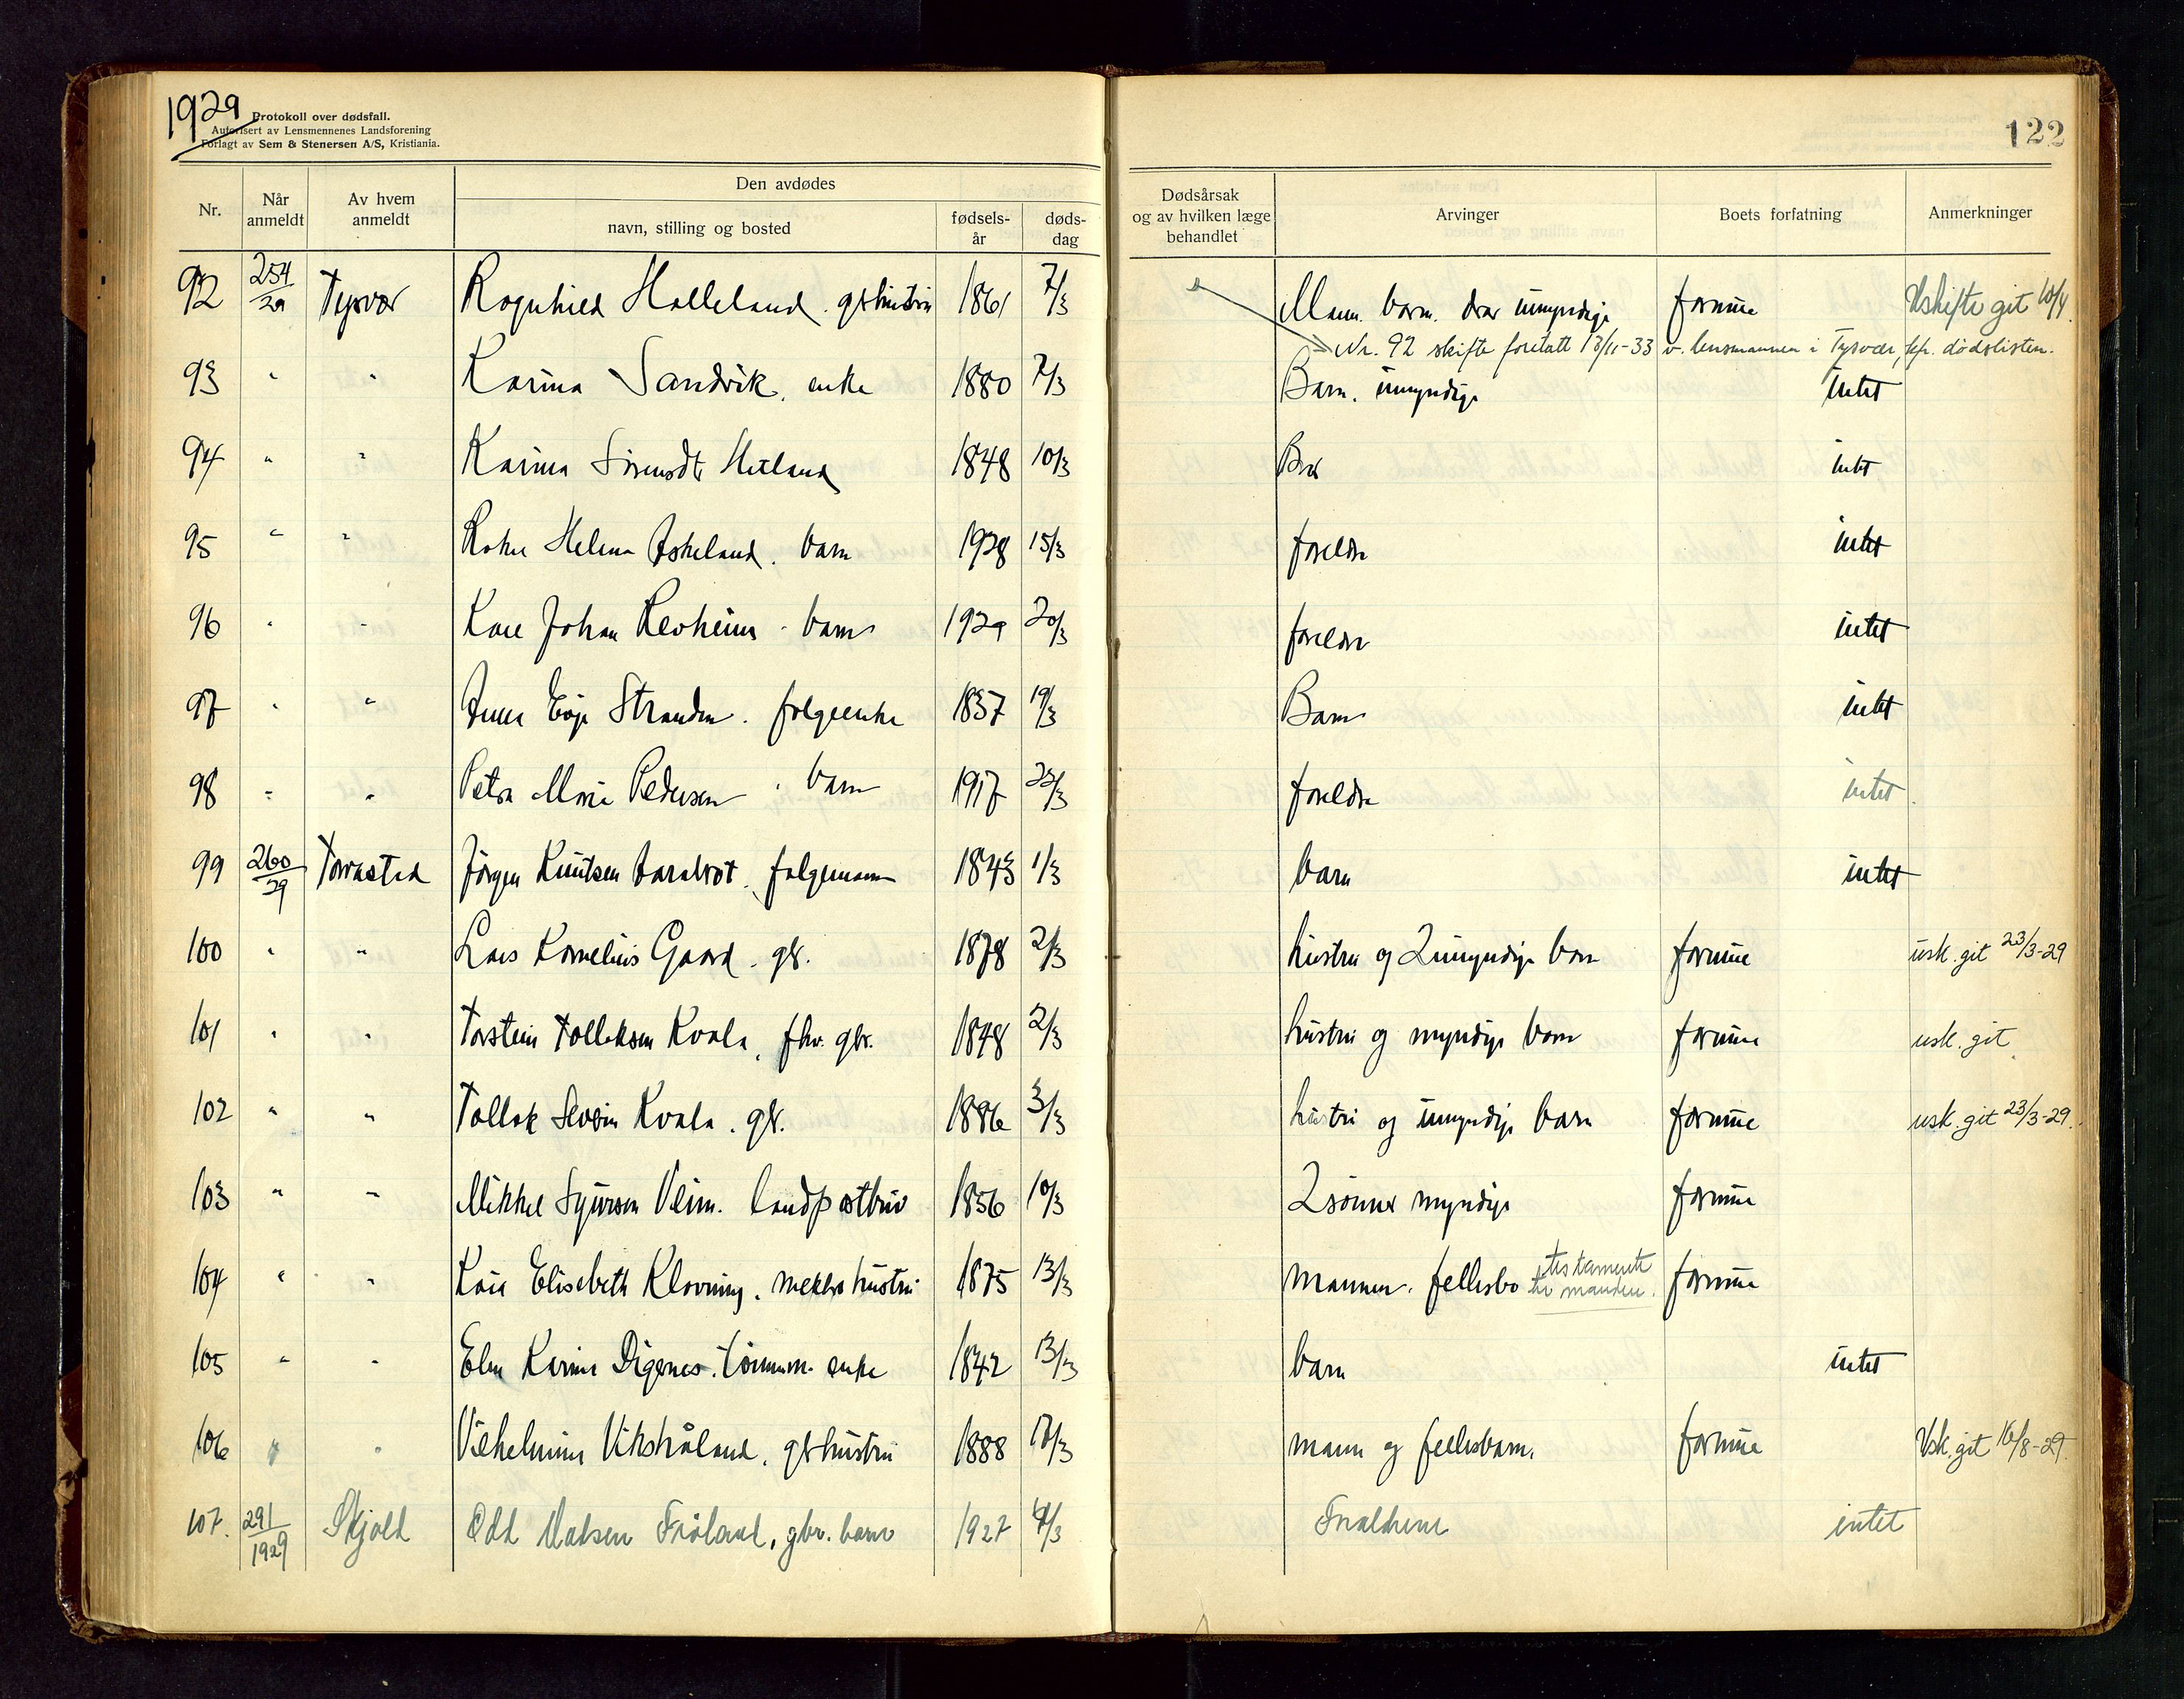 1929
Protokoll over dødsfall.
Autorisert av Lensmennenes Landsforening
Forlagt av Sem & Stenersen A/S, Kristiania.
122
Nr. Når anmeldt Av hvem anmeldt Den avdødes navn, stilling og bosted fødsels-år døds-dag Dødsårsak og av hvilken læge behandlet Arvinger Boets forfatning Anmerkninger
92 254/29 Tysvær Ragnhild Halleland. gbhustru 1861 7/3 Mann. barn. umyndige formue Uskifte git 10/4.
Nr. 92 skifte foretatt 13/11-33 v. lensmannen i Tysvær, dødslisten.
93 " " Karina Sandvik, enke 1880 7/3 Barn. umyndige intet
94 " " Karina Sørensdt Hetland 1848 10/3 intet
95 " " Helene Askeland. barn 1928 15/3 foreldre intet
96 " " Kåre Johan Revheim. barn 1929 20/3 foreldre intet
97 " " Anna Stranden. folgeenke 1837 19/3 Barn intet
98 " " Petra Marie Pedersen. barn 1917 foreldre intet
99 260/29 Torvastad Jörgen Knutsen, folgemann 1843 1/3 barn intet
100 " " Lars Kornelius Gaard. gb. 1878 2/3 hustru og 2 umyndige barn formue usk. git 23/3-29
101 " " Torstein Tollaksen Kvala, fhv. gbr. 1848 2/3 hustru og myndige barn formue usk. git
102 " " Tollak Severin Kvala. gb. 1886 3/3 hustru og umyndige barn formue usk. git 23/3-29.
103 " " Mikkel Sjursen Veim. landpostbud 1856 10/3 2 sønner myndige formue
104 " " Elisabeth Klovning. hustru 1875 13/3 mannen. fellesbo testamente til manden. formue
105 " " Karine Digenes. enke 1842 13/3 barn intet
106 " " Vilhelmine Vikshåland, gbhustru 1888 17/3 mann og fellesbarn. formue Usk. git 16/8-29.
107. 291/1929 Skjold Odd Madsen Fröland, gbr. barn 1927 4/3 Forældrene intet